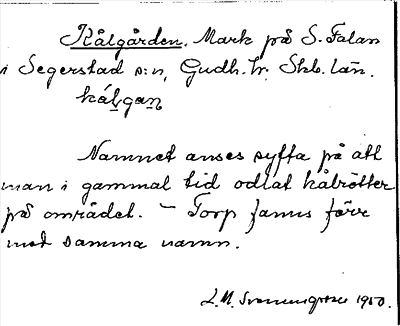 Kålgården. Mark på S. Falan
i Segerstad s:n, Gudh. hr. Skb. län.
kálgan
Namnet anses syfta på att
man i gammal tid odlat kålrötter
på området. – Torp fanns förr
med samma namn.
L.M. 1950.